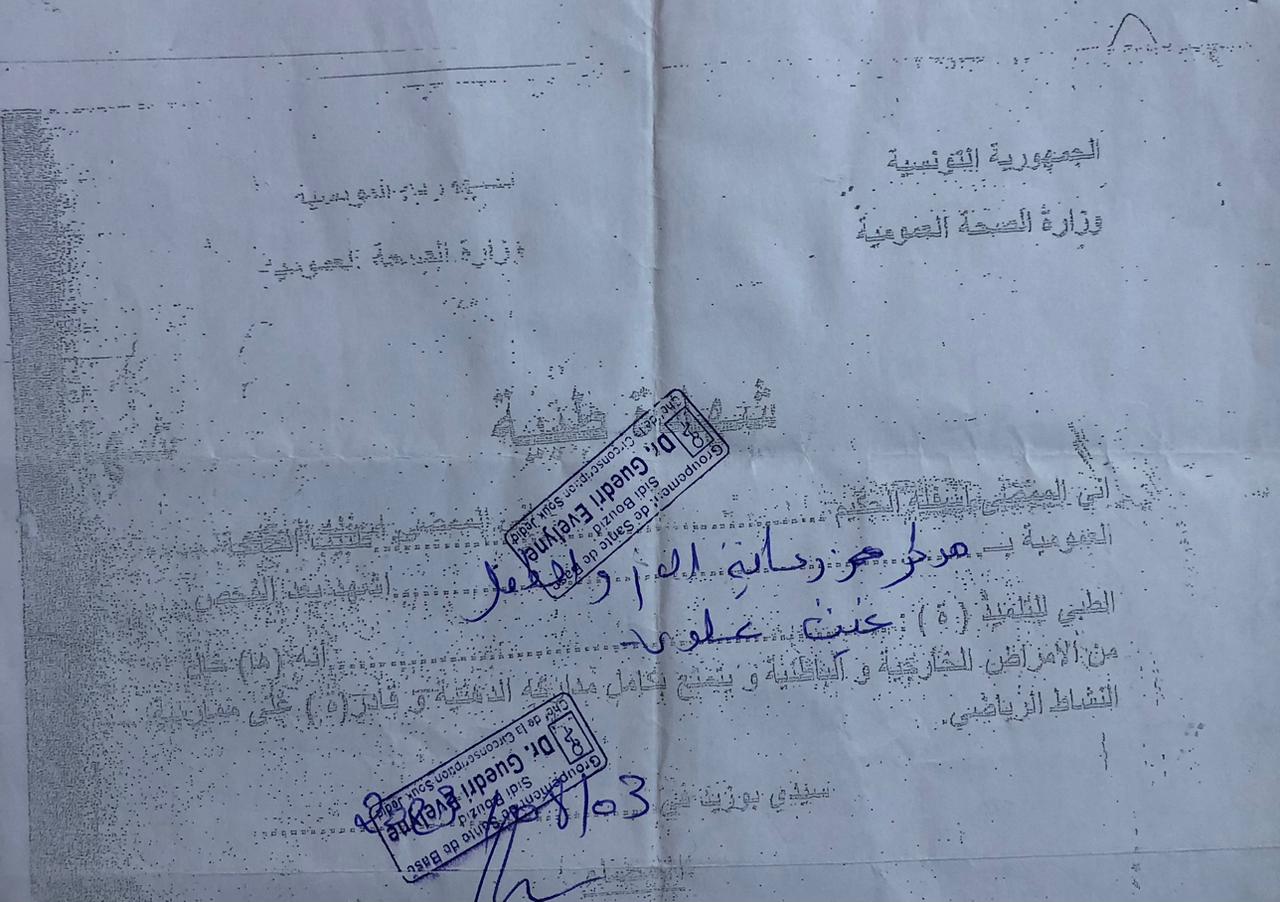 الجمهورية التونسية
وزارة الصحة العمومية
وزارة الصحة العمومية
شهادة طبية
إني الممضي أسفله الحكيم
الممضي أسفله الحكيم
Groupement de Santé de Base
Sidi Bouzid
Dr. Guedri Evelyne
Chef de la Circonscription Souk Jedid
العمومية بـ مركز رعاية الأم والطفل أشهد بعد الفحص
الطبي للتلميذ ( ة ) : علوي أنه (ها) خال
من الأمراض الخارجية و الباطنية و يتمتع بكامل مداركه الذهنية و قادر(ة) على ممارسة
النشاط الرياضي.
سيدي بوزيد في 03
Groupement de Santé de Base
Sidi Bouzid
Dr. Guedri Evelyne
Chef de la Circonscription Souk Jedid